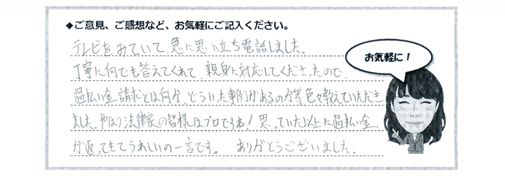 ◆ご意見、ご感想など、お気軽にご記入ください。
テレビをみていて急に思い立ち電話しました。
丁寧に何でも答えてくれて親身に対応してくださったので
過払い金請求とは何か、どういった事例があるのか等色々教えていただき
ました。やはり法律家の皆様はプロですね！思っていた以上に過払い金
が返ってきてうれしいの一言です。ありがとうございました。
お気軽に！